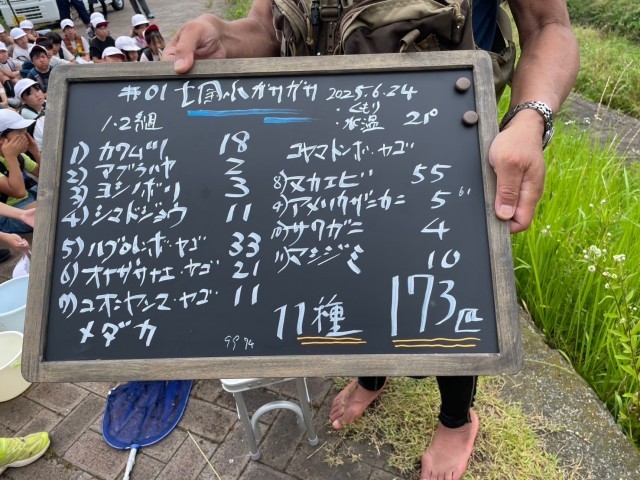 #01 七国小ガサガサ 2025.6.24
1・2組
・くもり
・水温 21°
1) カワムツ 18
2) アブラハヤ 2
3) ヨシノボリ 3
4) シマドジョウ 11
5) ハグロトンボ・ヤゴ 33
6) オナガサナエ・ヤゴ 21
7) コオニヤンマ・ヤゴ 11
メダカ
コヤマトンボ・ヤゴ
8) ヌカエビ 55
9) アメリカザリガニ 5
10) サワガニ 4
11) マシジミ 10
11種 173匹